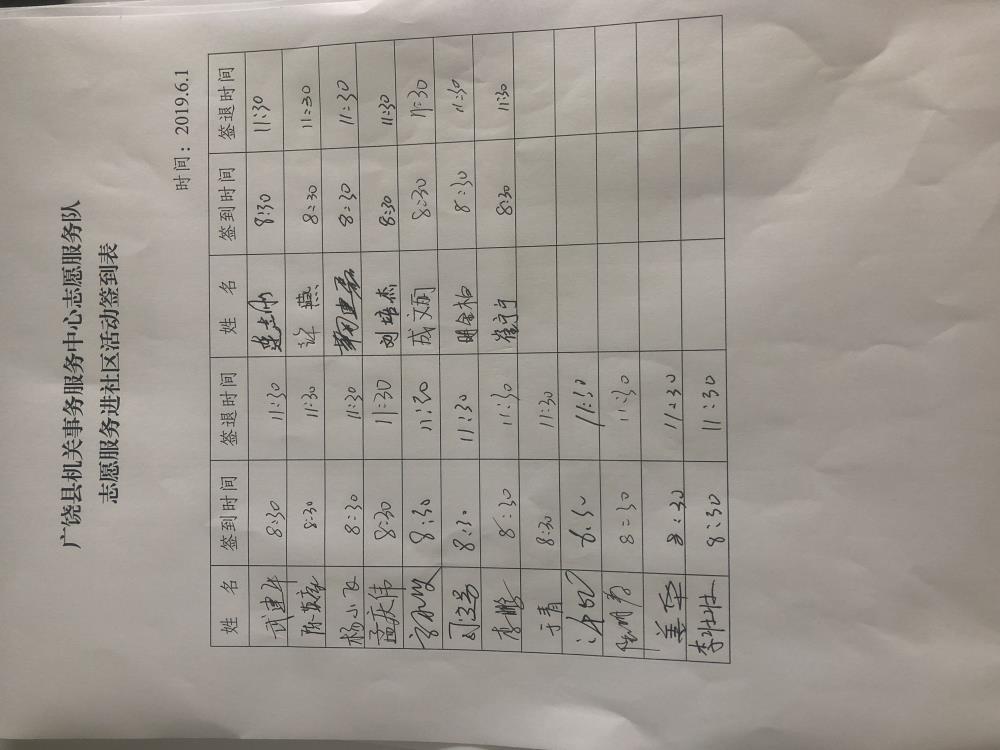 广饶县机关事务服务中心志愿服务队
志愿服务进社区活动签到表
时间：2019.6.1
姓 名 签到时间 签退时间 姓 名 签到时间 签退时间
武建华 8:30 11:30 8:30 11:30
陈英廉 8:30 11:30 许燕 8:30 11:30
杨小飞 8:30 11:30 8:30 11:30
孟庆伟 8:30 11:30 刘培杰 8:30 11:30
8:30 11:30 成文丽 8:30 11:30
8:30 11:30 明金柏 8:30 11:30
李鹏 8:30 11:30 崔宁宁 8:30 11:30
于青 8:30 11:30
8:30 11:30
8:30 11:30
姜军 8:30 11:30
李壮壮 8:30 11:30